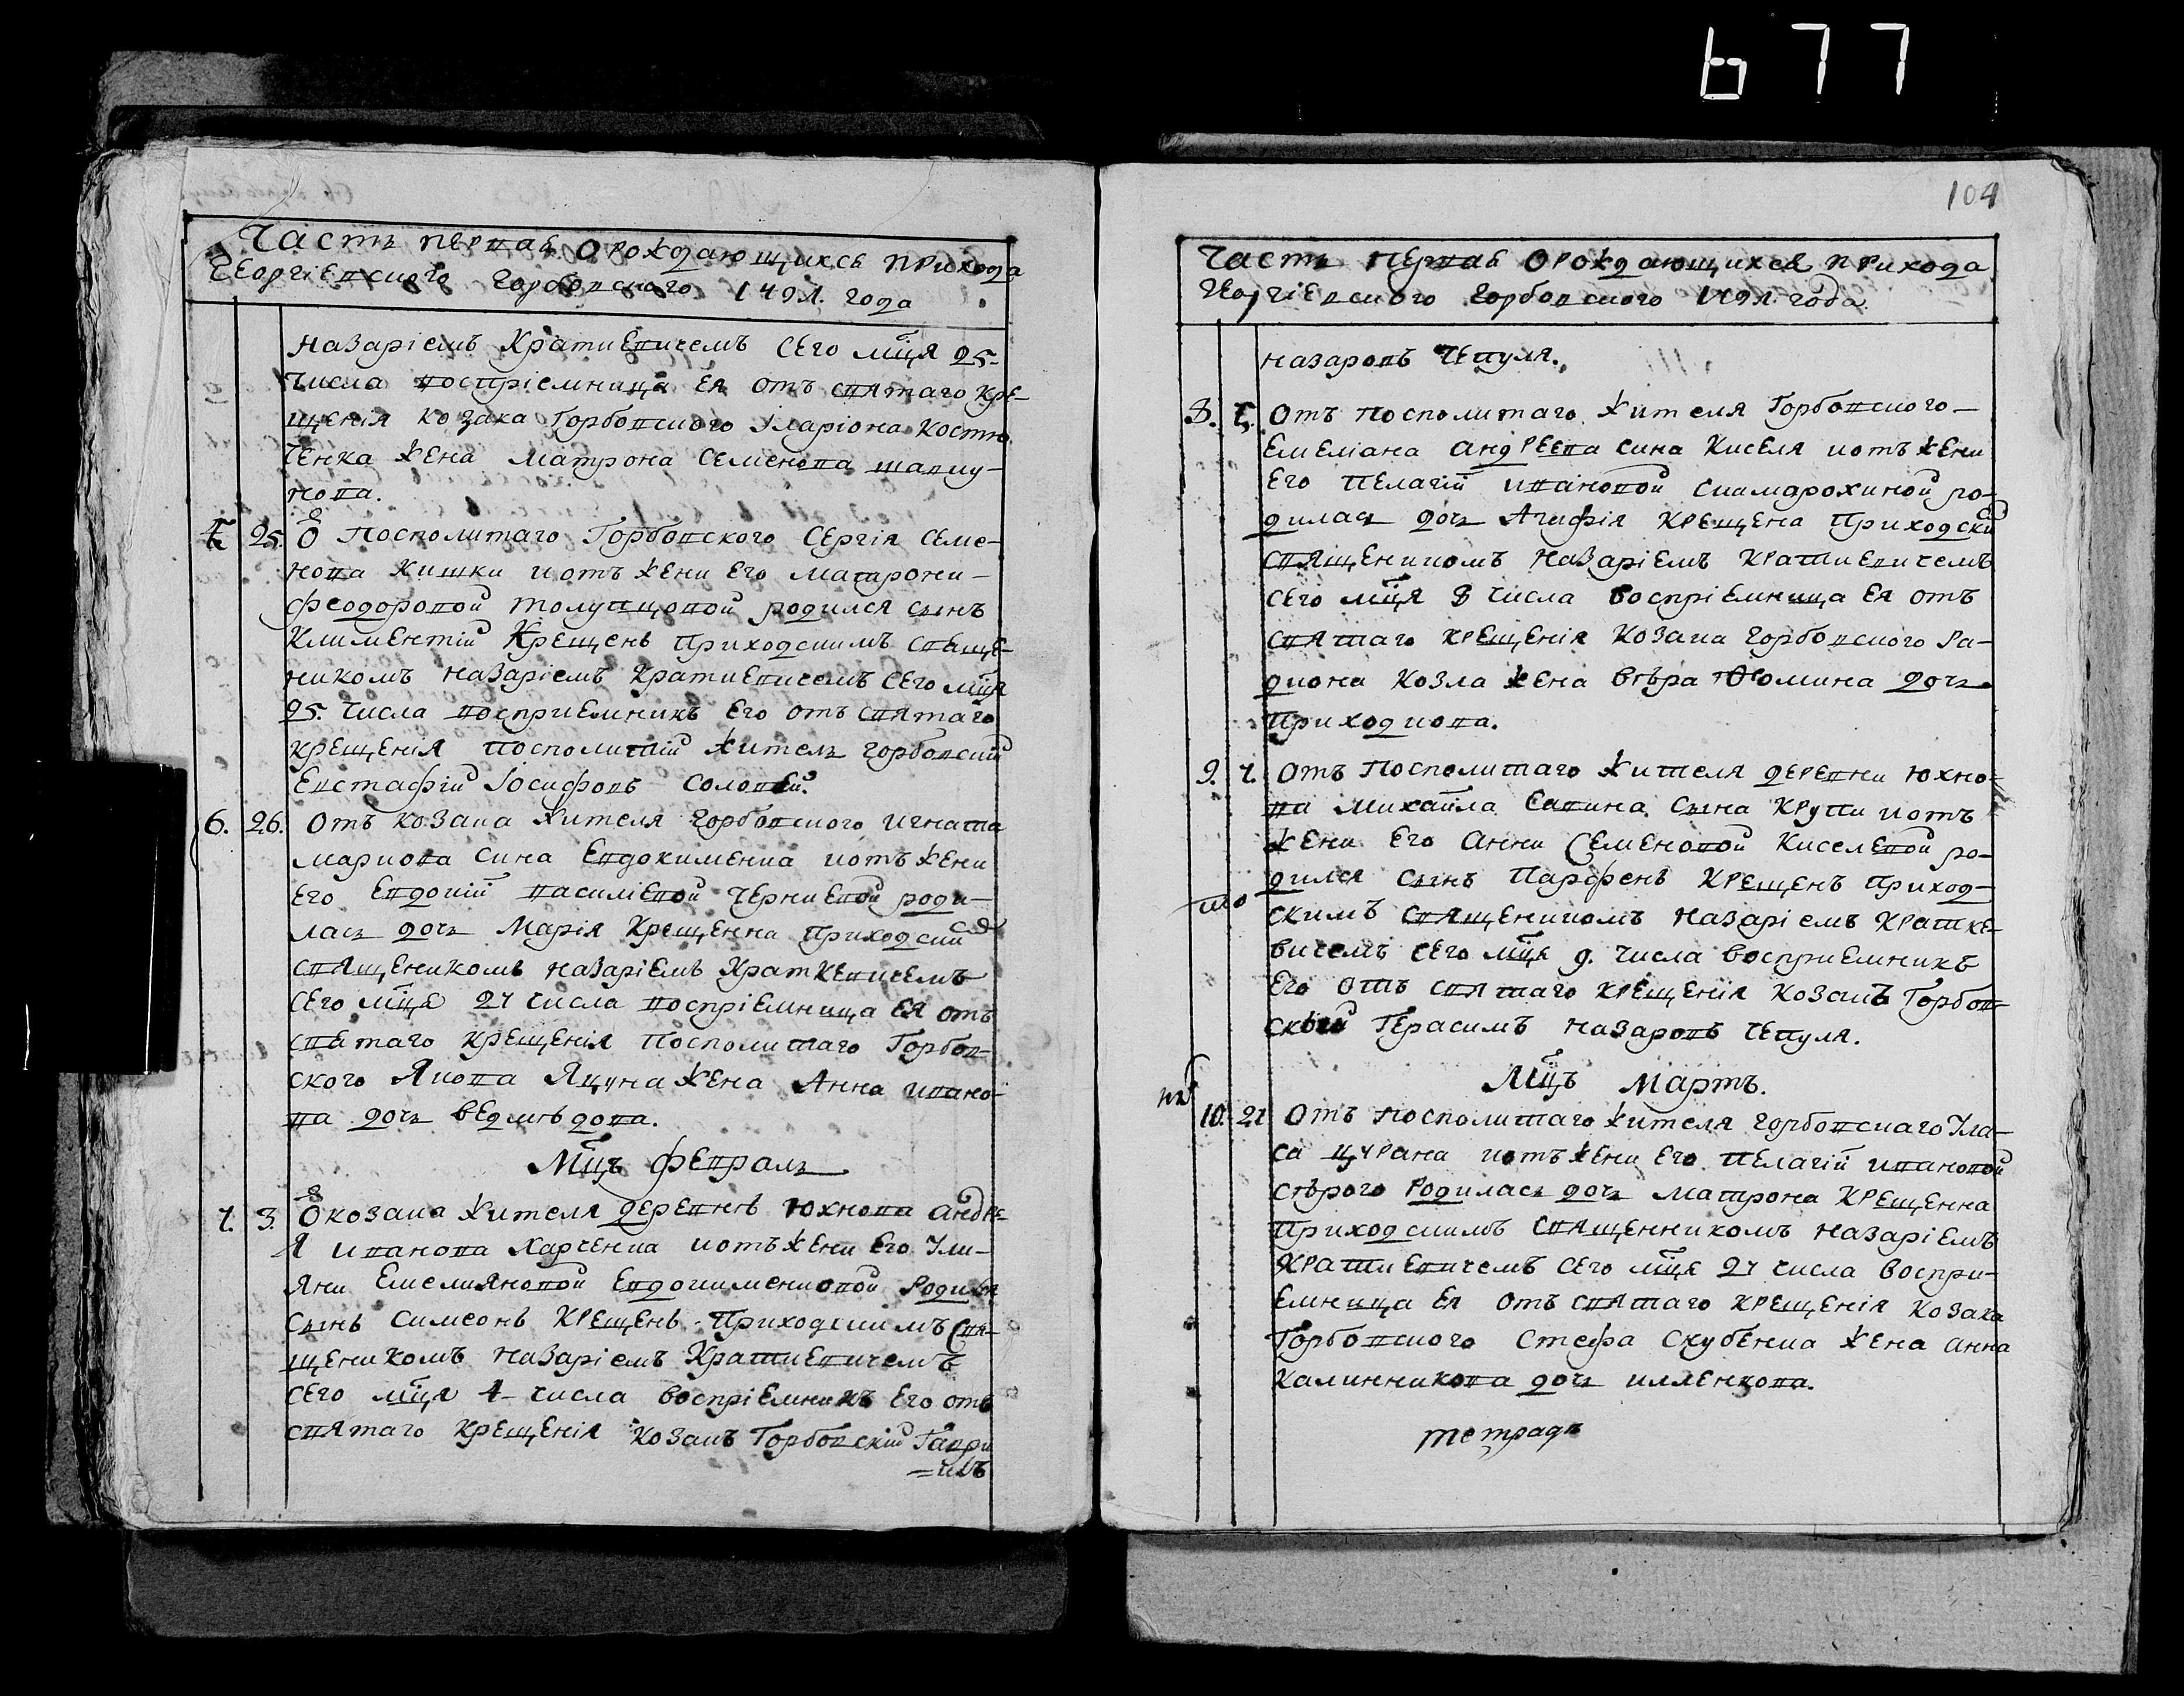 677
Часть первая о рождающихся прихода
Георгіевского Горбовского 1791. года
Назаріемъ Краткевичемъ сего мца 25.
числа воспріемница ея отъ святаго кре-
щенія козака Горбовского Іларіона Костю
ченка жена Матрона Семенова
нова.
5 25. Ѿ посполитаго Горбовского Сергія Семе-
нова Кишки и отъ жени его Матрони
Феодоровой родился сынъ
Климентій крещенъ приходскимъ свяще-
никомъ Назаріемъ Краткевичемъ сего мца
25. числа восприемникъ его отъ святаго
крещенія посполитій житель Горбовскій
Евстафій Іосифовъ Соловей.
6. 26. Отъ козака жителя Горбовского Игната
Маркова сина Евдокименка и отъ жени
его Евдокій Василіевой Черниевой роди-
лась дочь Марія крещенна приходским
священикомъ Назаріемъ Краткевичемъ
сего мца 27 числа воспріемница ея отъ
святаго крещенія посполитаго Горбов-
ского Якова Яцуна жена Анна Ивано-
ва дочь Ведмѣдова.
Мцъ Февраль
7. 3. Ѿ козака жителя деревнѣ Юхнова Андре-
я Иванова Харченка и отъ жени его Ули-
яни Емелияновой Евдокименковой родился
сынъ Симеонъ крещенъ приходскимъ свя-
щеникомъ Назаріемъ Краткевичемъ
сего мца 4 числа воспріемникъ его отъ
святаго крещенія козакъ Горбовскій Гаври
=илъ
104
Часть первая о рождающихся прихода
Георгіевского Горбовского 1791. года
Назаровъ Чепуля.
8. 5. Отъ посполитаго жителя Горбовского
Емеліана Андреева сина Киселя и отъ жени
его Пелагій Ивановой Скамарохиной ро-
дилась дочь Агафія крещена приходски
священикомъ Назаріемъ Краткевичемъ
сего мца 8 числа воспріемница ея отъ
святаго крещенія козака Горбовского Ра-
диона Козла жена Вѣра Фомина дочь
Приходкова.
9. 7. Отъ посполитаго жителя деревни Юхно-
ва Михайла Савина сына Крупи и отъ
жени его Анни Семеновой Киселевой ро-
дился сынъ Парфенъ крещенъ приход-
скимъ священикомъ Назаріемъ Кратке-
вичемъ сего мца 9. числа восприемникъ
его отъ святаго крещенія козакъ Горбов-
скій Герасимъ Назаровъ Чепуля.
Мцъ Мартъ.
10. 27 Отъ посполитаго жителя Горбовскаго Ула-
са Цурана и отъ жени его Пелагій Ивановой
Сѣрого родилась дочь Матрона крещенна
приходскимъ священникомъ Назаріемъ
Краткевичемъ сего мца 27 числа воспри-
емница ея отъ святаго крещенія козака
Горбовского Стефа Скубенка жена Анна
Калинникова дочь Илляенкова.
тетрадь